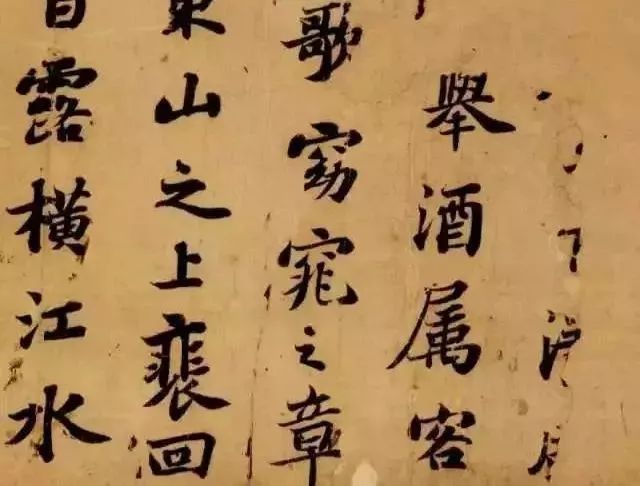 舉酒属客
歌窈窕之章
東山之上裵回
白露橫江水